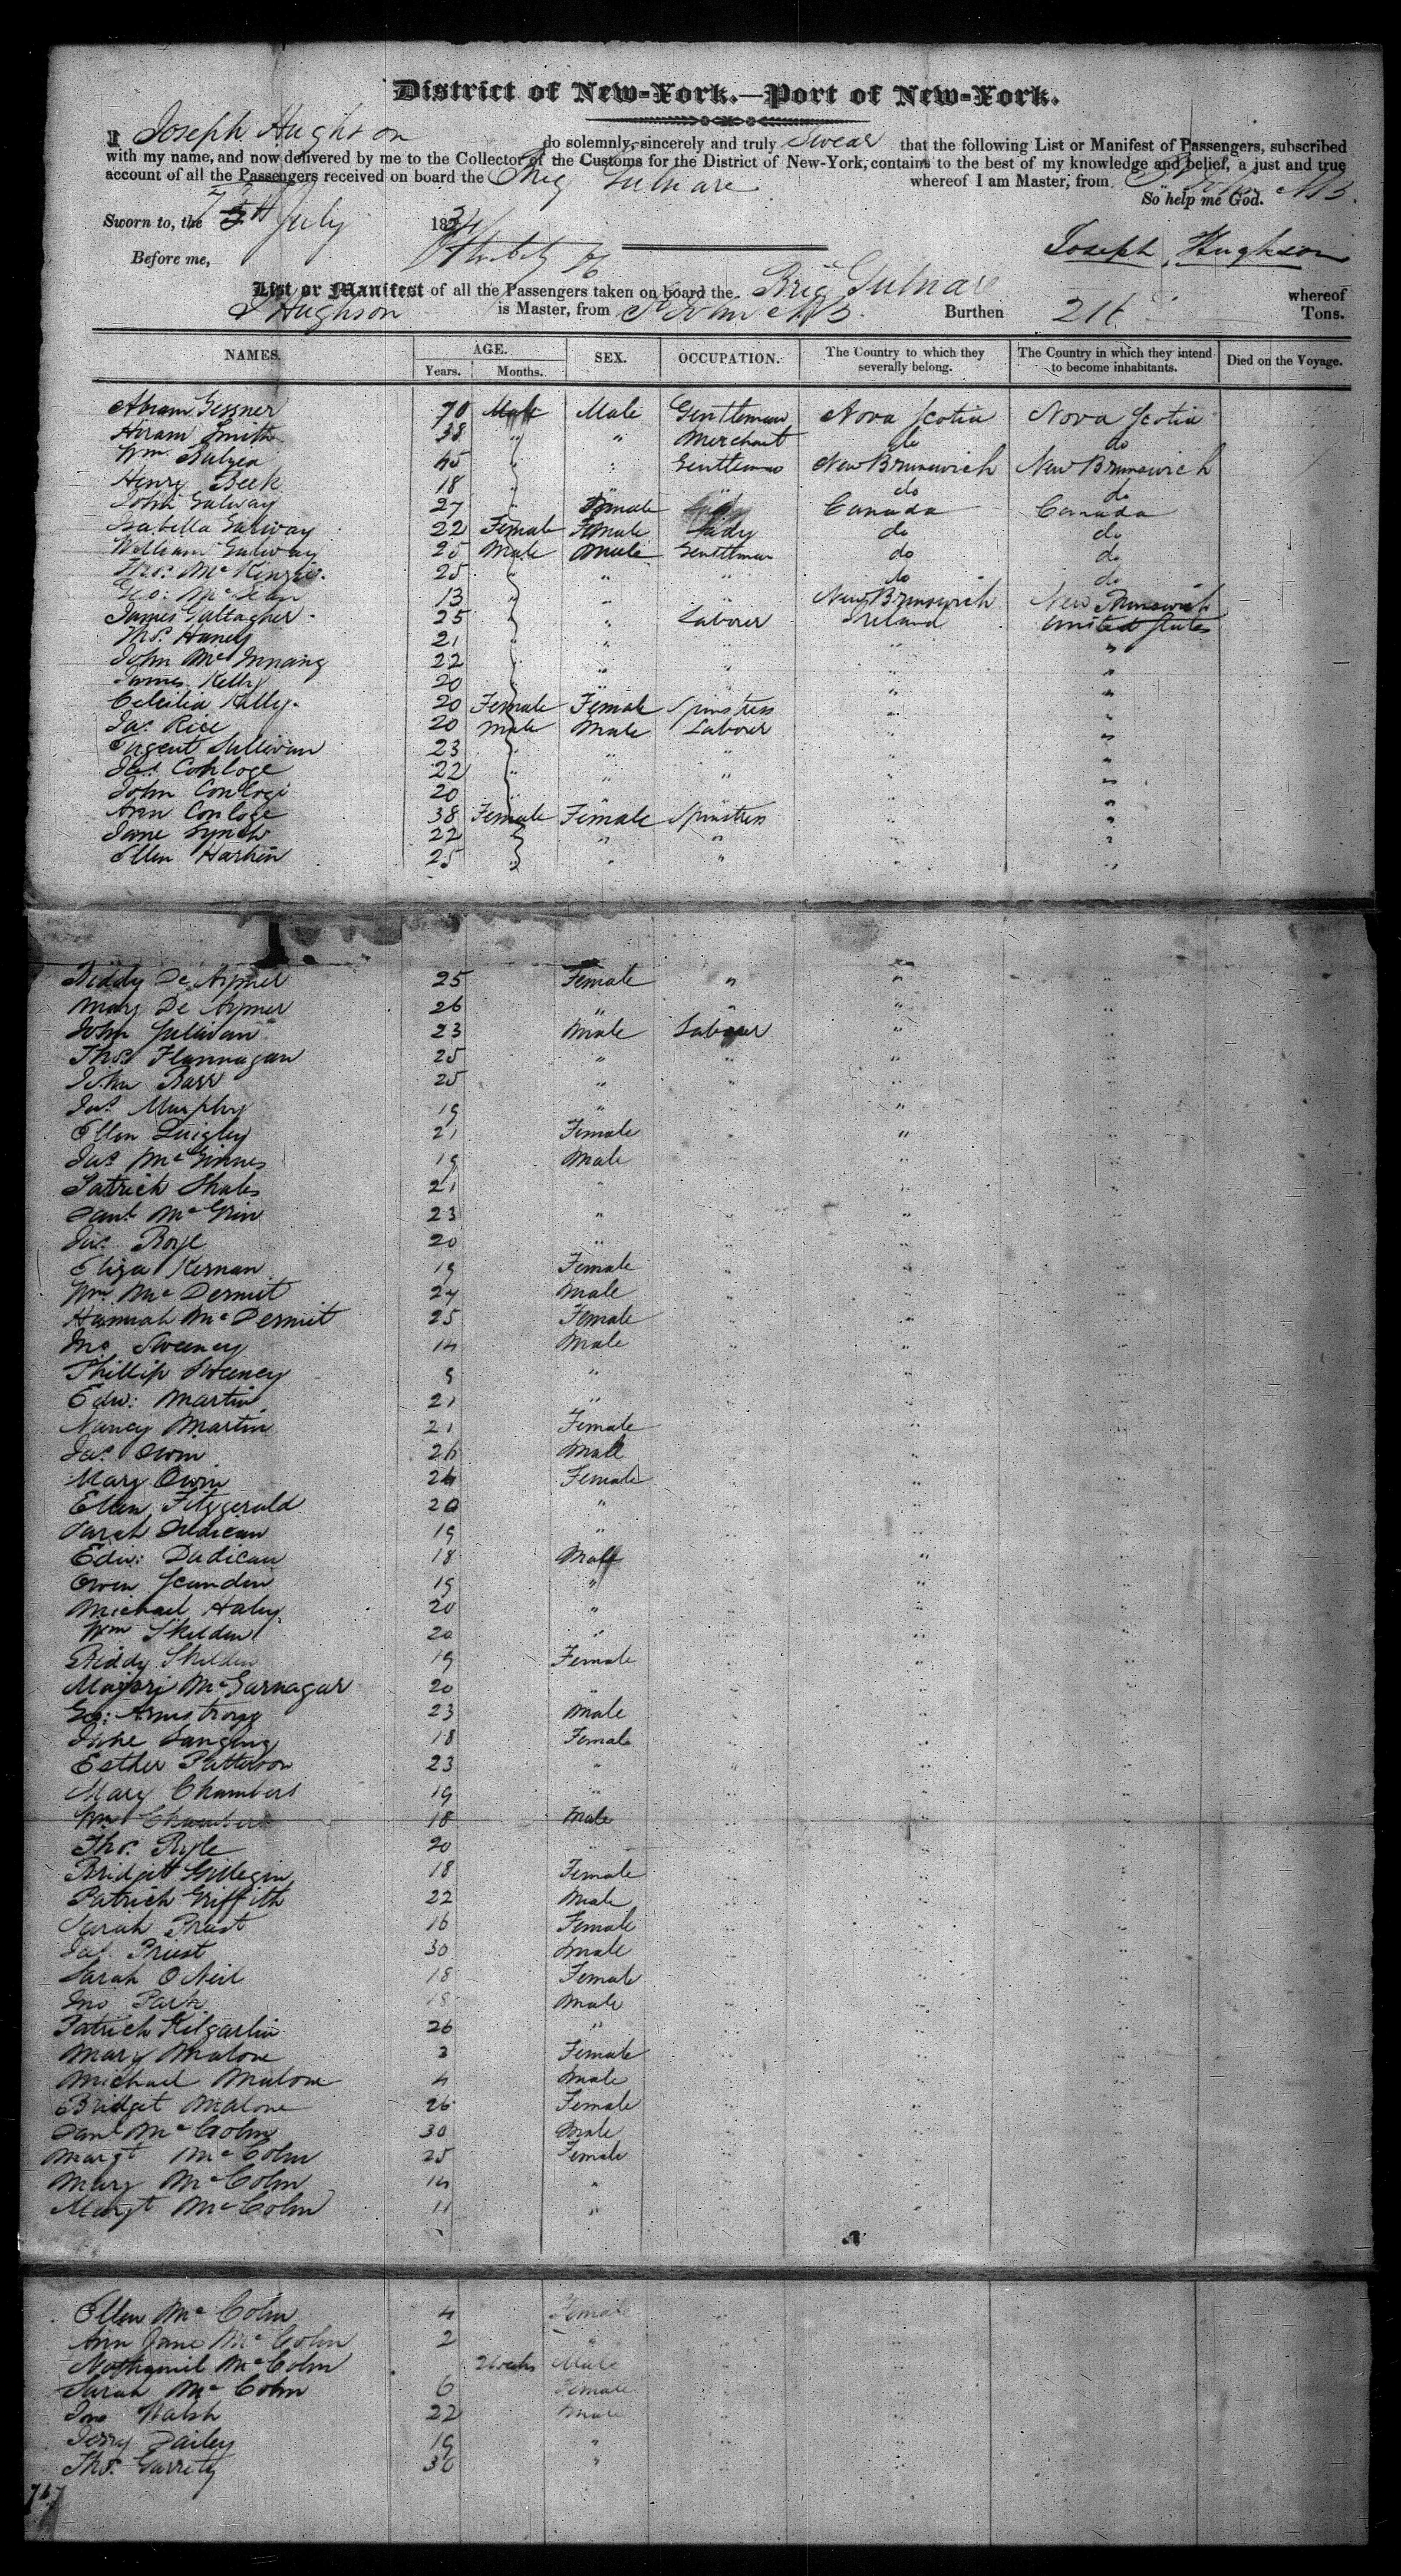 District of New-York.—Port of New-York.
I Joseph Hughson do solemnly, sincerely and truly Swear that the following List or Manifest of Passengers, subscribed
with my name, and now delivered by me to the Collector of the Customs for the District of New-York, contains to the best of my knowledge and belief, a just and true
account of all the Passengers received on board the Brig Gulnare whereof I am Master, from St John NB.
So help me God.
Sworn to, the July 1834
Joseph Hughson
Before me,
List or Manifest of all the Passengers taken on board the Brig Gulnare whereof
J Hughson is Master, from St John NB. Burthen 216 Tons.
NAMES. AGE. SEX. OCCUPATION. The Country to which they severally belong. The Country in which they intend to become inhabitants. Died on the Voyage.
Years. Months.
Abram Gessner 70 Male Male Gentleman Nova Scotia Nova Scotia
Hiram Smith 38 " " Merchant do do
Wm Bulyea 45 " " Gentleman New Brunswick New Brunswick
Henry Beek 18 " " " do do
John Galway 27 " Canada Canada
Isabella Galway 22 Female Female Lady do do
William Galway 25 Male Male Gentleman do do
Thos. McKenzie 25 " " " do do
Geo: McLean 13 " " " New Brunswick New Brunswick
James Gallagher 25 " " Laborer Ireland United States
Thos. Haney 21 " " " " "
John 22 " " " "
James Kelly 20 " " " " "
Cecilia Kelly 20 Female Female Spinstress " "
Jas. Rice 20 Male Male Laborer " "
Sullivan 23 " " " " "
Jas. Conloge 22 " " " " "
John Conlogi 20 " " " " "
Ann Conloge 38 Female Female Spinstress " "
Jane Lynch 22 " " " " "
Ellen Harkin 25 " " " " "
Biddy De 25 Female " " "
Mary De 26 " " " "
John Sullivan 23 Male Laborer " "
Thos Flannagan 25 " " " "
John Barr 25 " " " "
Jas. Murphy 19 " " " "
Ellen Quigley 21 Female " " "
Jas McGinnes 19 Male " " "
Patrick Shales 21 " " " "
Danl. McGrin 23 " " " "
Jas. Boyle 20 " " " "
Eliza Kernan 19 Female " " "
Wm. McDermit 24 Male " " "
Hannah McDermit 25 Female " " "
Jno Sweeney 14 Male " " "
Phillip Sweeney 9 " " "
Edw: Martin 21 " " "
Nancy Martin 21 Female " "
Jas. Owin 26 Male " "
Mary Owin 24 Female " " "
Ellen Fitzgerald 20 " " " "
Sarah Dudican 19 " " " "
Edw: Dudican 18 Male " "
Owen Scanden 19 " " "
Michael Haley 20 " " " "
Wm Skelden 20 " " " "
Biddy Skelden 19 Female " " "
Marjori 20 " " " "
Geo: Armstrong 23 Male " " "
Jane 18 Female " " "
Esther Patterson 23 " " " "
Mary Chambers 19 " " " "
Wm Chambers 18 Male " " "
Thos. Ryle 20 " " " "
Bridgett Gillegin 18 Female " " "
Patrick Griffith 22 Male " " "
Sarah Priest 16 Female " " "
Jas. Priest 30 Male " " "
Sarah O Neil 18 Female " " "
Jno Park 18 Male " " "
Patrick Kilgarlin 26 " " " "
Mary Malone 3 Female " " "
Michael Malone 4 Male " " "
Bridget Malone 26 Female " " "
Danl McColm 30 Male " " "
Margt McColm 25 Female " " "
Mary McColm 14 " " " "
Margt McColm 11 " " " "
Ellen McColm 4 Female " " "
Ann Jane McColm 2 " " " "
Nathaniel McColm 2 weeks Male " " "
Sarah McColm 6 Female " " "
Jno Walsh 22 Male " " "
Jerry Dailey 19 " " " "
Thos. Garrety 30 " " " "